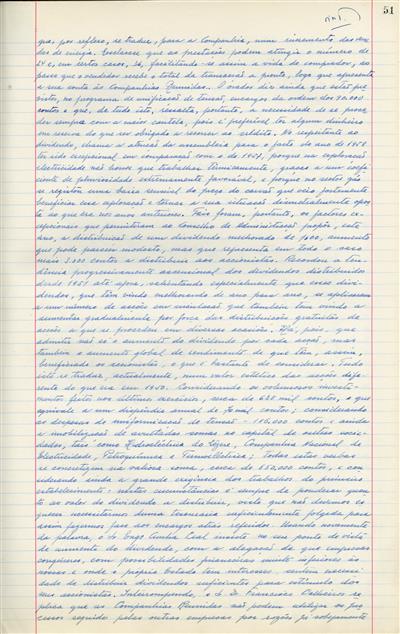 51
que, por reflexo, se traduz, para a Companhia, num incremento das ven-
das de energia. Esclarece que as prestações podem atingir o número de
24 e, em certos casos, 36, facilitando-se assim a vida do comprador, ao
passo que o vendedor recebe o total da transacção a pronto, logo que apresente
a sua conta às Companhias Reunidas. O orador diz ainda que estão pre-
vistos, no programa de unificação de tensão, encargos da ordem dos
contos e que, de tudo isto, ressalta, portanto, a necessidade de se proce-
der sempre com a maior cautela, pois é preferível ter algum dinheiro
em reserva do que ser obrigado a recorrer ao crédito. No respeitante ao
dividendo, chama a atenção da assembleia para o facto do ano de 1958
ter sido excepcional em comparação com o de 1957, porque na exploração
electricidade não houve que trabalhar termicamente, graças a um coefi-
ciente de pluviosidade extremamente favorável, e porque no sector gás
se registou uma baixa sensível do preço do carvão que veio fortemente
beneficiar essa exploração e tornar a sua situação diametralmente opos-
ta ao que era nos anos anteriores. Tais foram, portanto, os factores ex-
cepcionais que permitiram ao Conselho de Administração propor, este
ano, a distribuição de um dividendo melhorado de aumento
que pode parecer modesto, mas que representa em todo o caso
mais 3.000 contos a distribuir aos accionistas. Recordou a ten-
dência progressivamente ascensional dos dividendos distribuídos
desde 1951 até agora, salientando especialmente que esses divi-
dendos, que têm vindo melhorando de ano para ano, se aplicaram
a um número de acções em circulação que também tem vindo a
aumentar gradualmente por força das distribuições gratuitas de
acções a que se procedeu em diversas ocasiões. Há, pois, que
admitir não só o aumento do dividendo por cada acção, mas
também o aumento global de rendimento de que têm, assim,
beneficiado os accionistas, o que é bastante de considerar. Tudo
isto se traduz, actualmente, num valor estático das acções dife-
rente do que era em 1950. Considerando os volumosos investi-
mentos feitos nos últimos exercícios, cerca de 628 mil contos, o que
equivale a um dispêndio anual de mil contos; considerando
as despesas de uniformização de tensão - 110.000 contos e ainda
a imobilização de avultadas somas no capital de outras socie-
dades, tais como Hidroeléctrica do Zêzere, Companhia Nacional de
Electricidade, Petroquímica e Termoeléctrica; todas estas verbas
se concretizam na valiosa soma, cerca de 850.000 contos, e con-
siderando ainda a grande exigência dos trabalhos do primeiro
estabelecimento: nestas circunstâncias é sempre de ponderar quan-
to ao valor do dividendo a distribuir, visto que não devemos es-
quecer necessitarmos duma tesouraria suficientemente folgada para
assim fazermos face aos encargos atrás referidos. Usando novamente
da palavra, o Sr. Engº Cunha Leal insiste no seu ponto de vista
de aumento do dividendo, com a alegação de que empresas
congéneres, com possibilidades financeiras muito inferiores às
nossas e onde o próprio Estado tem interesses, sentem necessi-
dade de distribuir dividendos suficientes para estímulo dos
seus accionistas. Interrompendo, o Sr. Dr. Francisco Calheiros re-
plica que as Companhias Reunidas não podem adoptar os pro-
cessos seguidos pelas outras empresas por razões já sobejamente